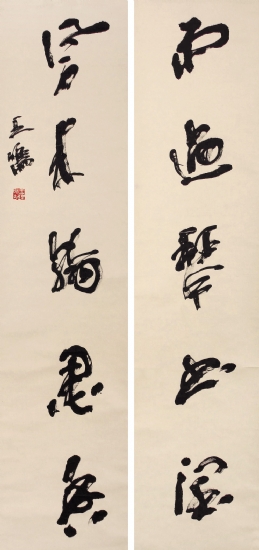 雨過琴書潤
風來翰墨香
王鏞